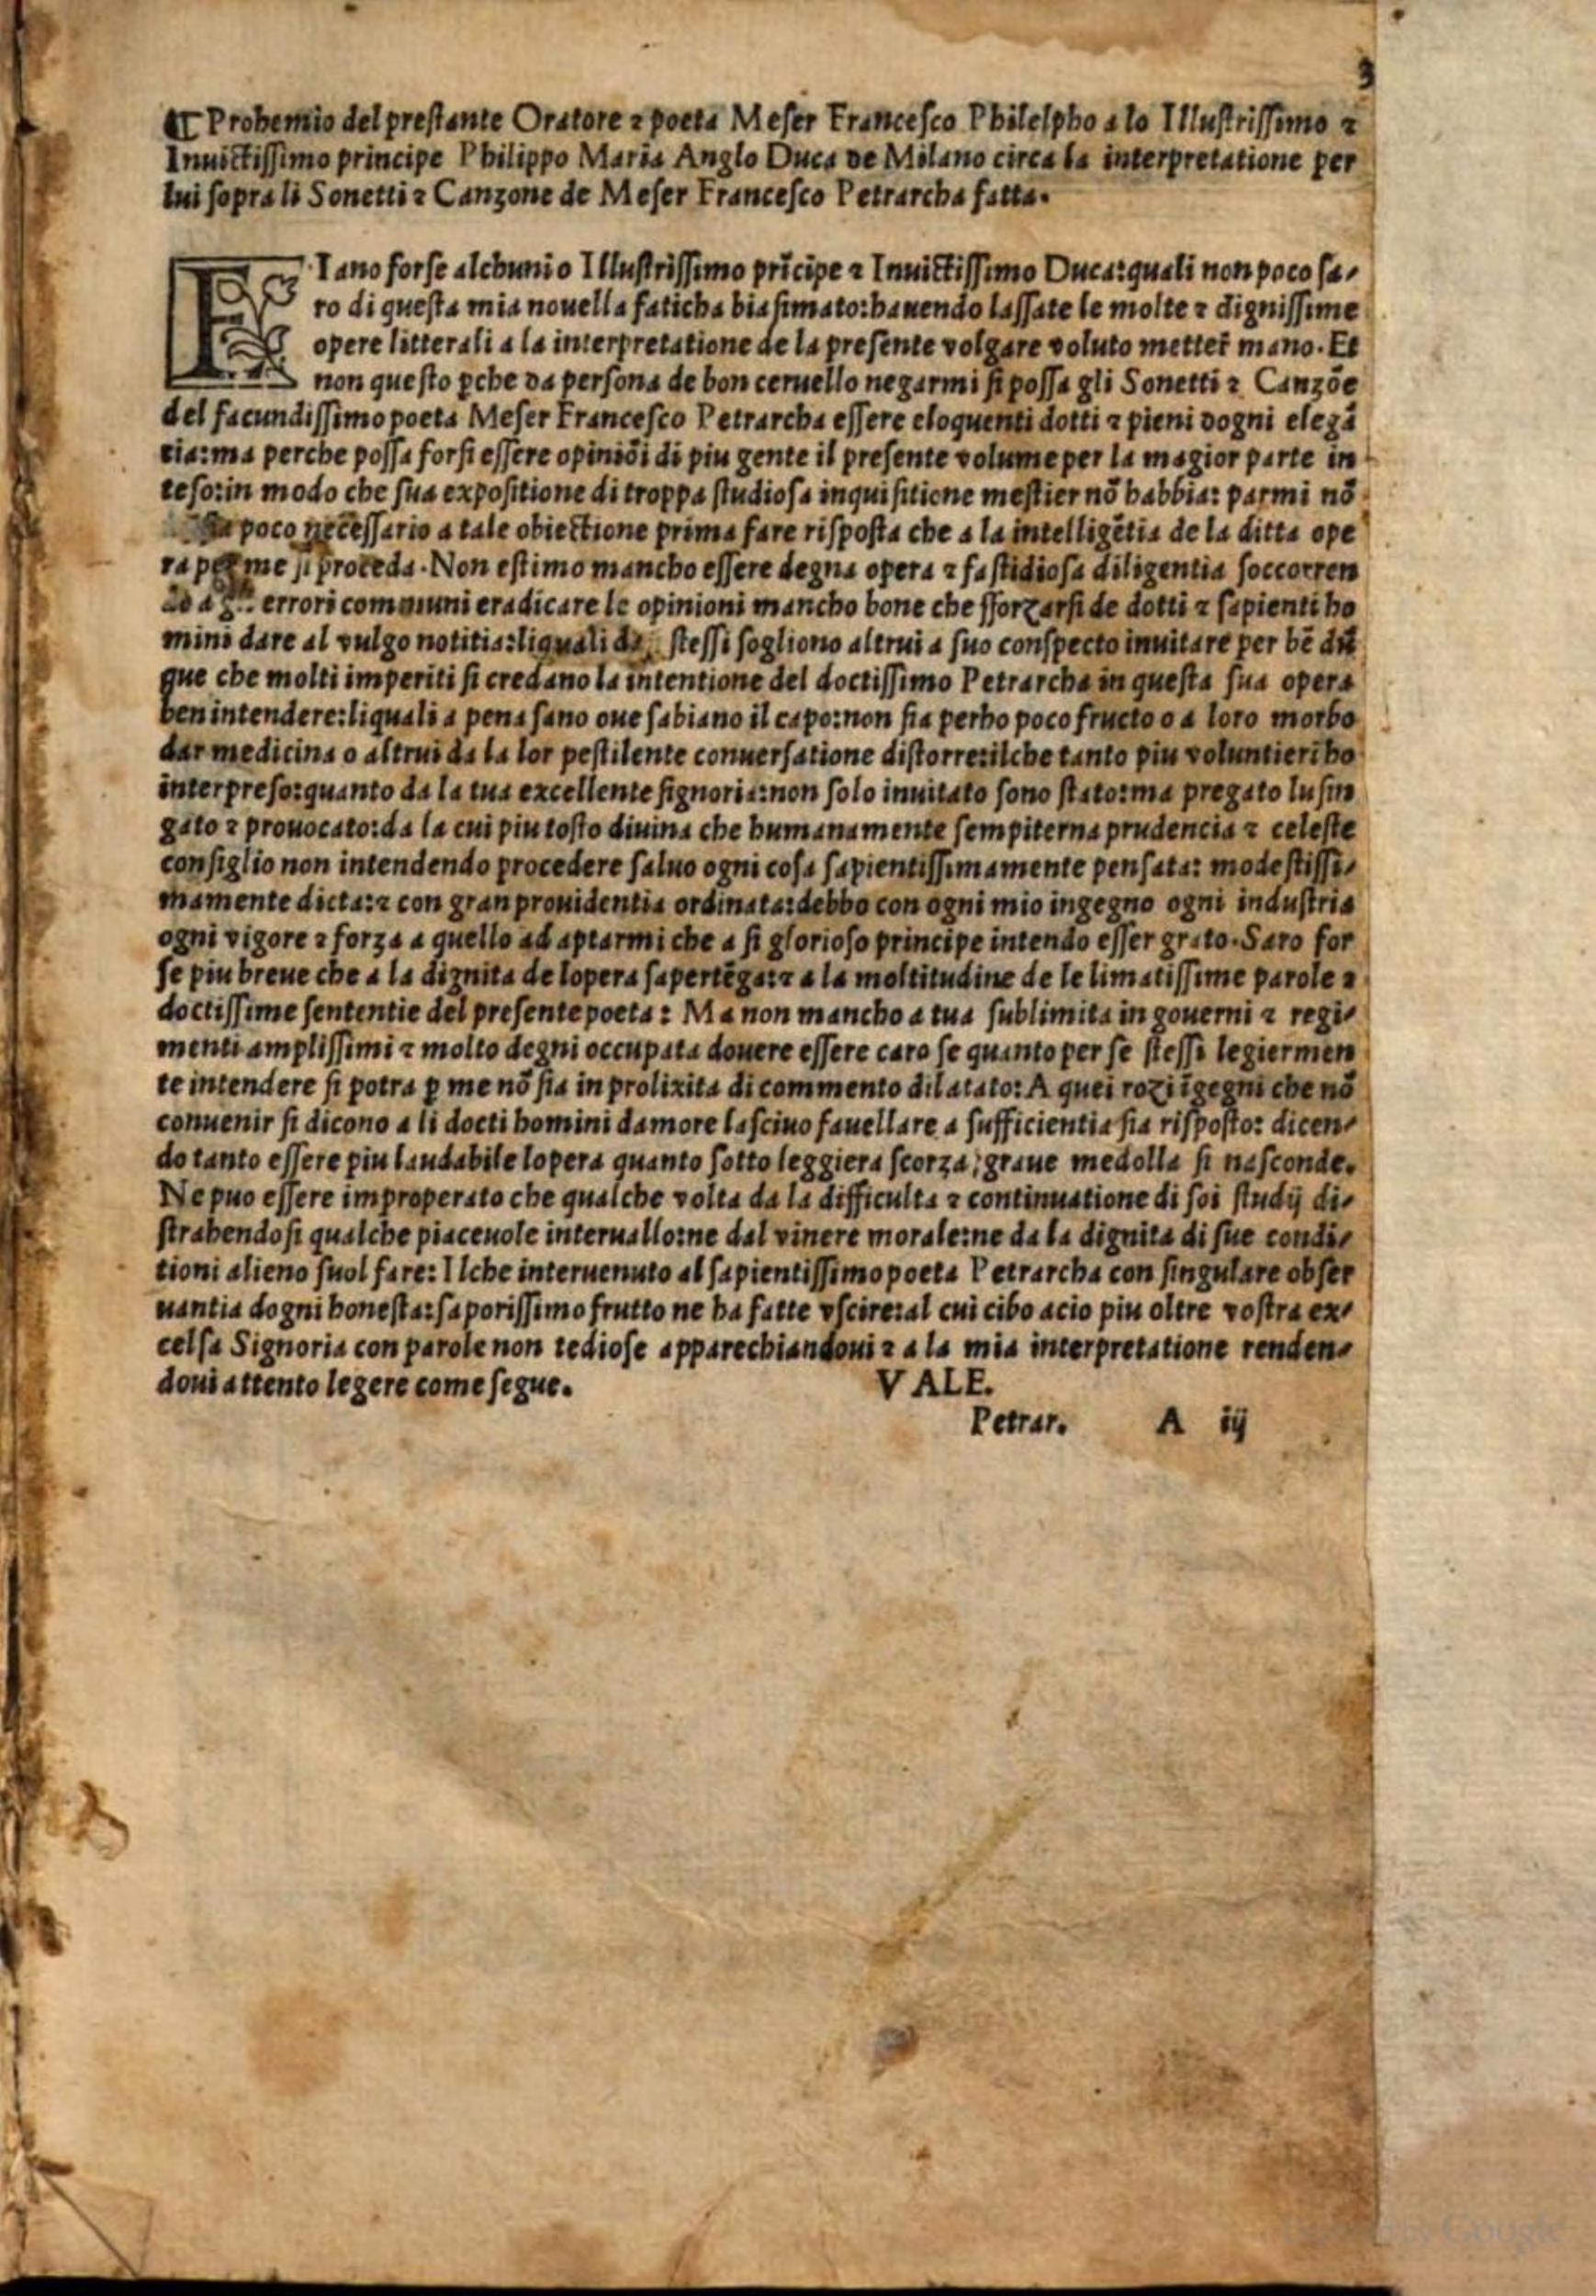 3
¶ Prohemio del prestante Oratore ⁊ poeta Meser Francesco Philelpho a lo Illustrissimo ⁊
Inuictissimo principe Philippo Maria Anglo Duca de Milano circa la interpretatione per
lui sopra li Sonetti ⁊ Canzone de Meser Francesco Petrarcha fatta.
FIano forse alchuni o Illustrissimo prīcipe ⁊ Inuictissimo Duca: quali non poco sa-
ro di questa mia nouella faticha biasimato: hauendo lassate le molte ⁊ dignissime
opere litterali a la interpretatione de la presente volgare voluto metter̄ mano. Et
non questo ꝑche da persona de bon ceruello negarmi si possa gli Sonetti ⁊ Canzōe
del facundissimo poeta Meser Francesco Petrarcha essere eloquenti dotti ⁊ pieni dogni elegā
tia: ma perche possa forsi essere opiniōi di piu gente il presente volume per la magior parte in
teso: in modo che sua expositione di troppa studiosa inquisitione mestier nō habbia: parmi nō
poco necessario a tale obiectione prima fare risposta che a la intelligētia de la ditta ope
ra per me si proceda. Non estimo mancho essere degna opera ⁊ fastidiosa diligentia soccorren
errori communi eradicare le opinioni mancho bone che sforzarsi de dotti ⁊ sapienti ho
mini dare al vulgo notitia: liquali da stessi sogliono altrui a suo conspecto inuitare per bē dū
que che molti imperiti si credano la intentione del doctissimo Petrarcha in questa sua opera
ben intendere: liquali a pena sano oue sabiano il capo: non sia perho poco fructo o a loro morbo
dar medicina o altrui da la lor pestilente conuersatione distorre: ilche tanto piu voluntieri ho
interpreso: quanto da la tua excellente signoria: non solo inuitato sono stato: ma pregato lusin
gato ⁊ prouocato: da la cui piu tosto diuina che humanamente sempiterna prudencia ⁊ celeste
consiglio non intendendo procedere saluo ogni cosa sapientissimamente pensata: modestissi-
mamente dicta: ⁊ con gran prouidentia ordinata: debbo con ogni mio ingegno ogni industria
ogni vigore ⁊ forza a quello adaptarmi che a si glorioso principe intendo esser grato. Saro for
se piu breue che a la dignita de lopera sapertēga: ⁊ a la moltitudine de le limatissime parole ⁊
doctissime sententie del presente poeta: Ma non mancho a tua sublimita in gouerni ⁊ regi-
menti amplissimi ⁊ molto degni occupata douere essere caro se quanto per se stessi legiermen
te intendere si potra ꝑ me nō sia in prolixita di commento dilatato: A quei rozi īgegni che nō
conuenir si dicono a li docti homini damore lasciuo fauellare a sufficientia sia risposto: dicen-
do tanto essere piu laudabile lopera quanto sotto leggiera scorza, graue medolla si nasconde.
Ne puo essere improperato che qualche volta da la difficulta ⁊ continuatione di soi studij di-
strahendosi qualche piaceuole interuallo: ne dal viuere morale: ne da la dignita di sue condi-
tioni alieno suol fare: Ilche interuenuto al sapientissimo poeta Petrarcha con singulare obser
uantia dogni honesta: saporissimo frutto ne ha fatte vscire: al cui cibo acio piu oltre vostra ex-
celsa Signoria con parole non tediose apparechiandoui ⁊ a la mia interpretatione renden-
doui attento legere come segue. VALE.
Petrar. A iij
Google